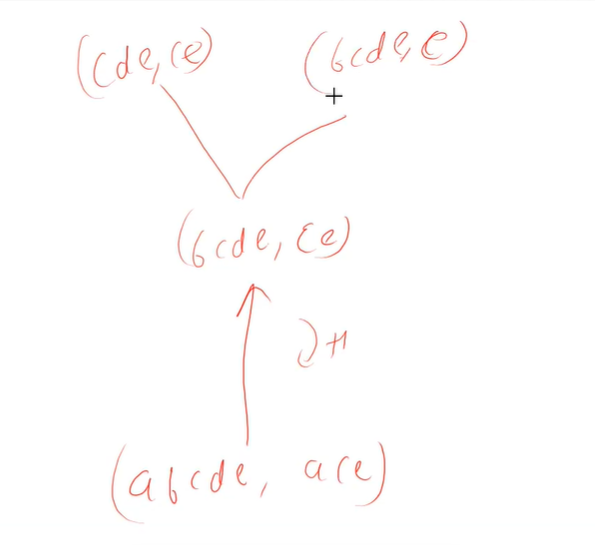 (cde, ce) (bcde, e)
(bcde, ce)
(abcde, ace)